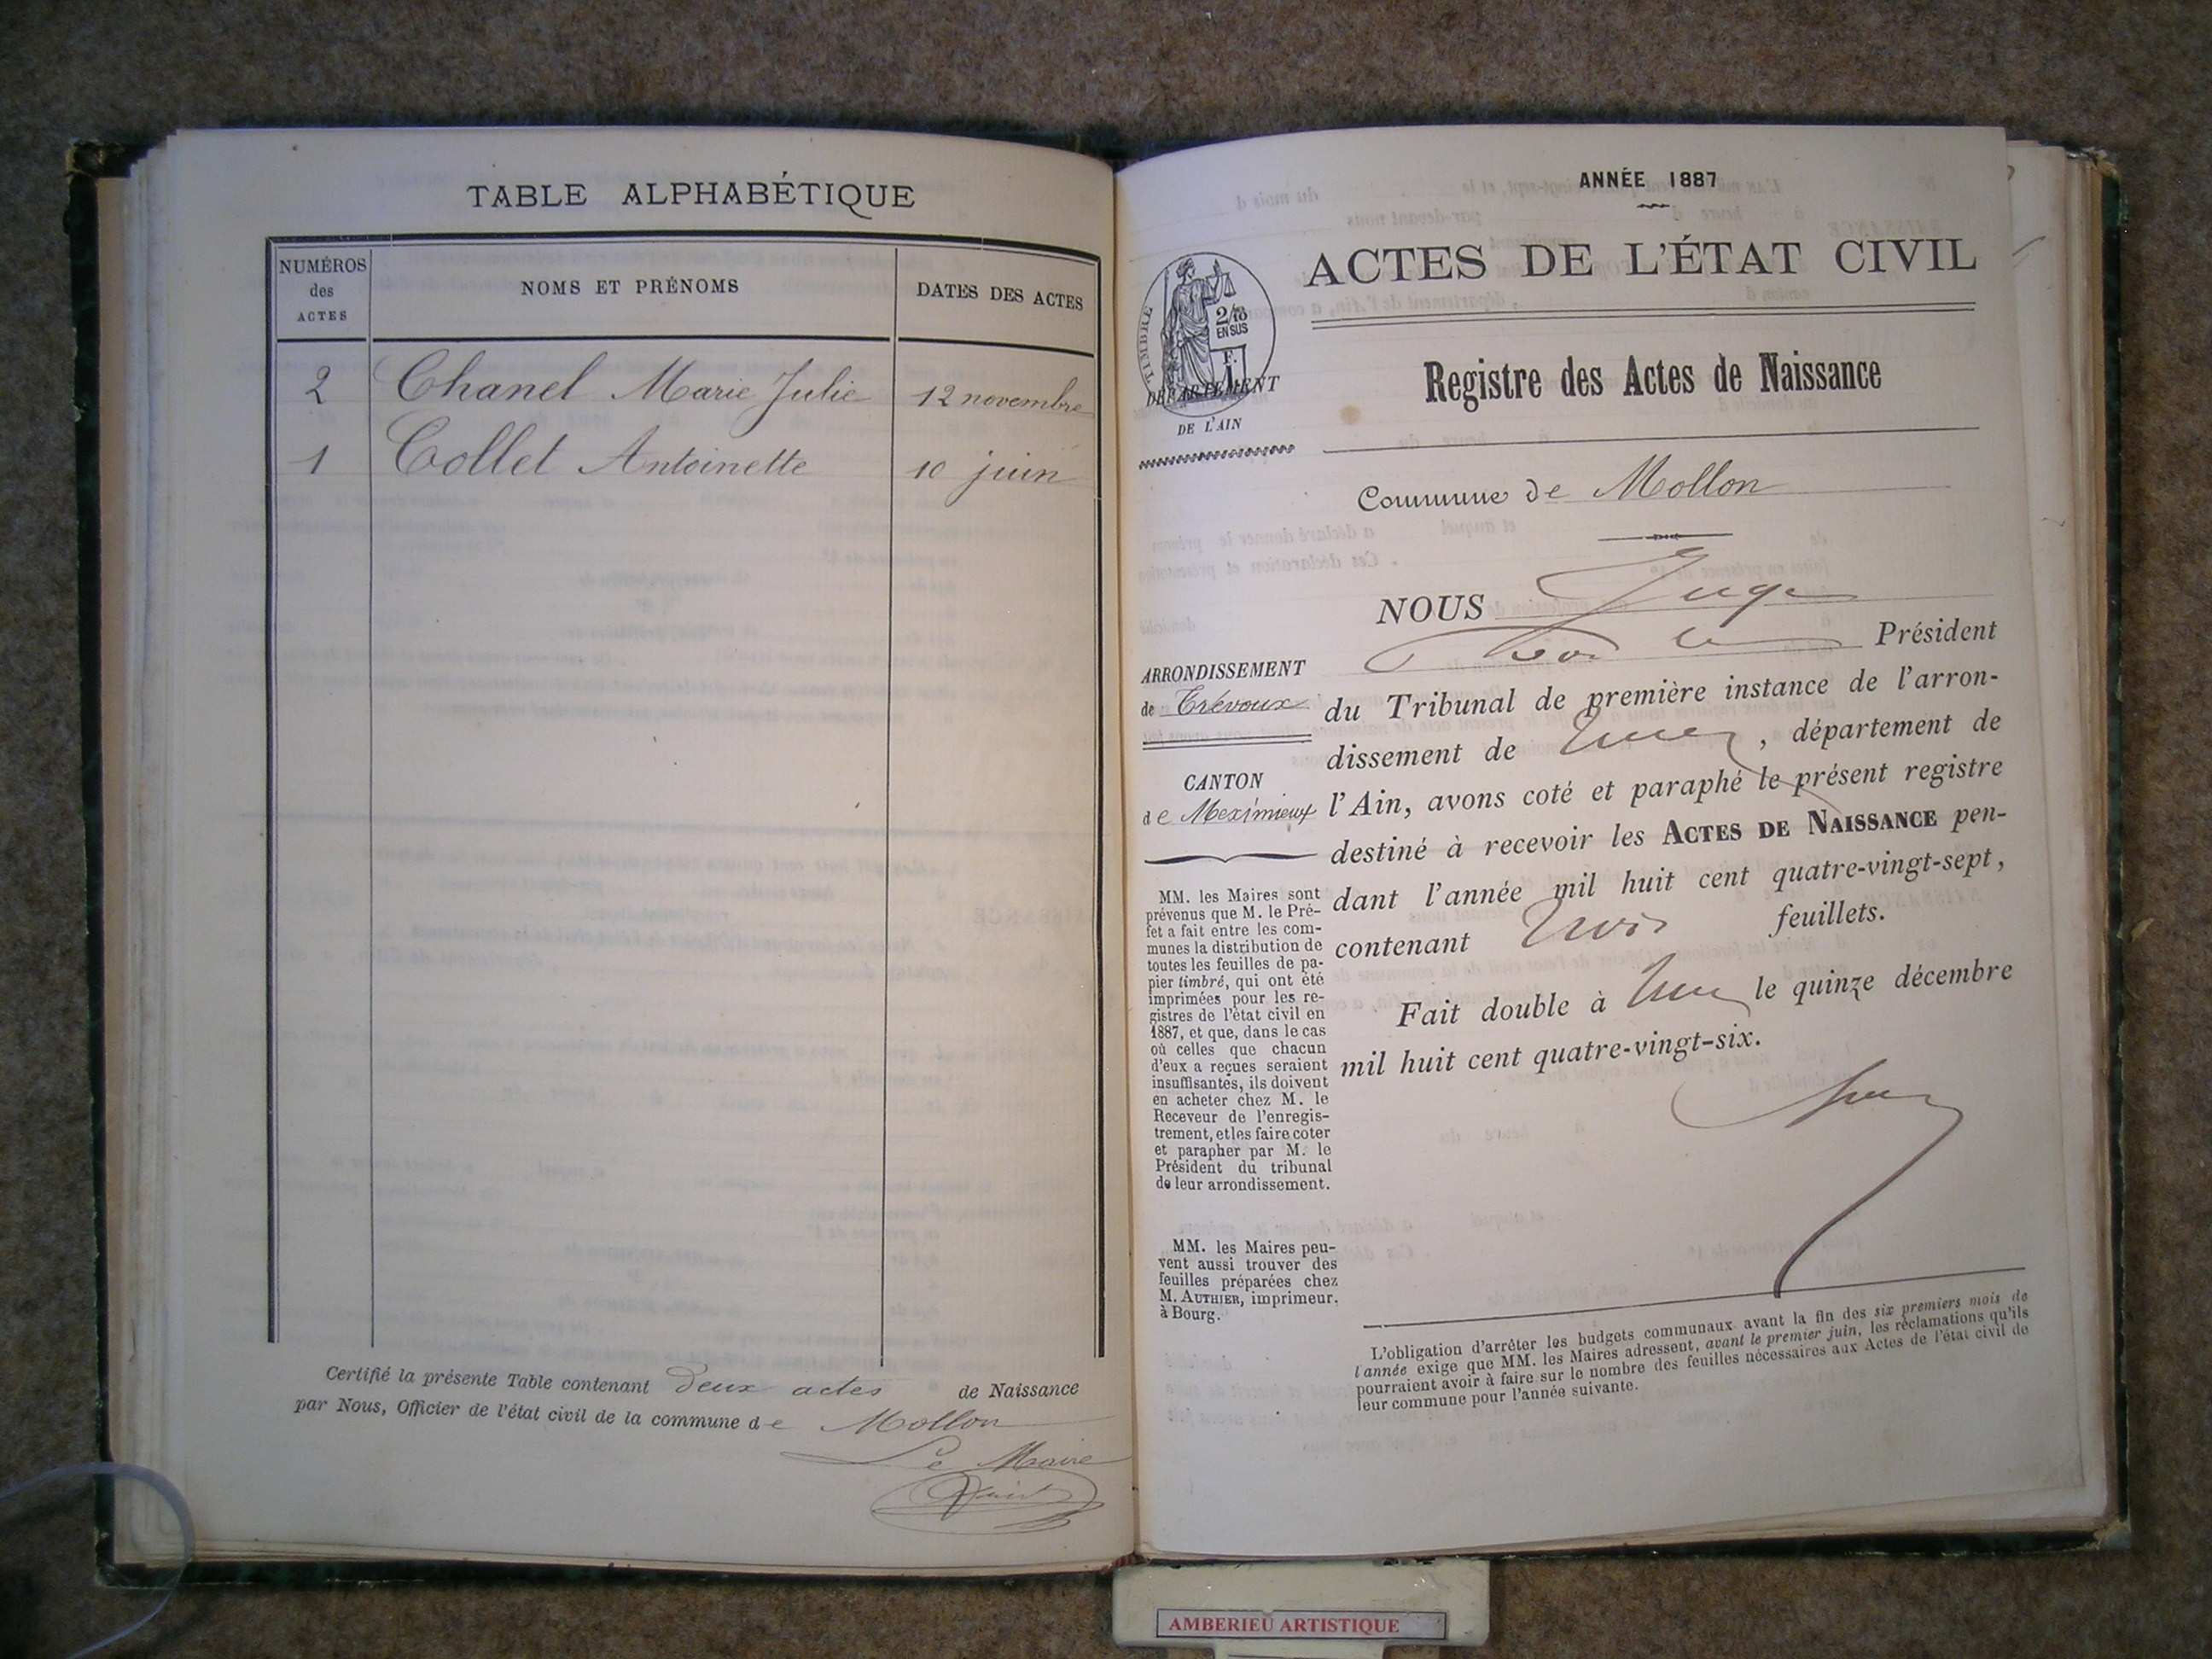 TABLE ALPHABÉTIQUE
NUMÉROS
des
ACTES
NOMS ET PRÉNOMS
DATES DES ACTES
2 Chanel Marie Julie 12 novembre
1 Collet Antoinette 10 juin
Certifié la présente Table contenant deux actes de Naissance
par Nous, Officier de l'état civil de la commune de Mollon
Le Maire
ANNÉE 1887
ACTES DE L'ÉTAT CIVIL
TIMBRE
2/10
EN SUS
F.
1
DÉPARTEMENT
DE L'AIN
Registre des Actes de Naissance
Commune de Mollon
ARRONDISSEMENT
de Trévoux
CANTON
de Meximieux
MM. les Maires sont
prévenus que M. le Pré-
fet a fait entre les com-
munes la distribution de
toutes les feuilles de pa-
pier timbré, qui ont été
imprimées pour les re-
gistres de l'état civil en
1887, et que, dans le cas
où celles que chacun
d'eux a reçues seraient
insuffisantes, ils doivent
en acheter chez M. le
Receveur de l'enregis-
trement, et les faire coter
et parapher par M. le
Président du tribunal
de leur arrondissement.
MM. les Maires peu-
vent aussi trouver des
feuilles préparées chez
M. AUTHIER, imprimeur,
à Bourg.
NOUS Juge
Président
du Tribunal de première instance de l'arron-
dissement de , département de
l'Ain, avons coté et paraphé le présent registre
destiné à recevoir les ACTES DE NAISSANCE pen-
dant l'année mil huit cent quatre-vingt-sept,
contenant trois feuillets.
Fait double à le quinze décembre
mil huit cent quatre-vingt-six.
L'obligation d'arrêter les budgets communaux avant la fin des six premiers mois de
l'année exige que MM. les Maires adressent, avant le premier juin, les réclamations qu'ils
pourraient avoir à faire sur le nombre des feuilles nécessaires aux Actes de l'état civil de
leur commune pour l'année suivante.
AMBERIEU ARTISTIQUE